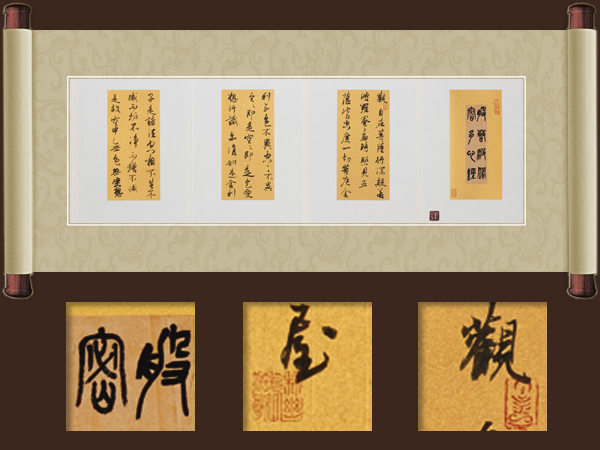 般若波羅
密多心經
觀自在菩薩行深般若
波羅蜜多時照見五
蘊皆空度一切苦厄舍
利子色不異空空不異
色色即是空空即是色受
想行識亦復如是舍利
子是諸法空相不生不
滅不垢不淨不增不減
是故空中無色無受想
密般
屋
觀